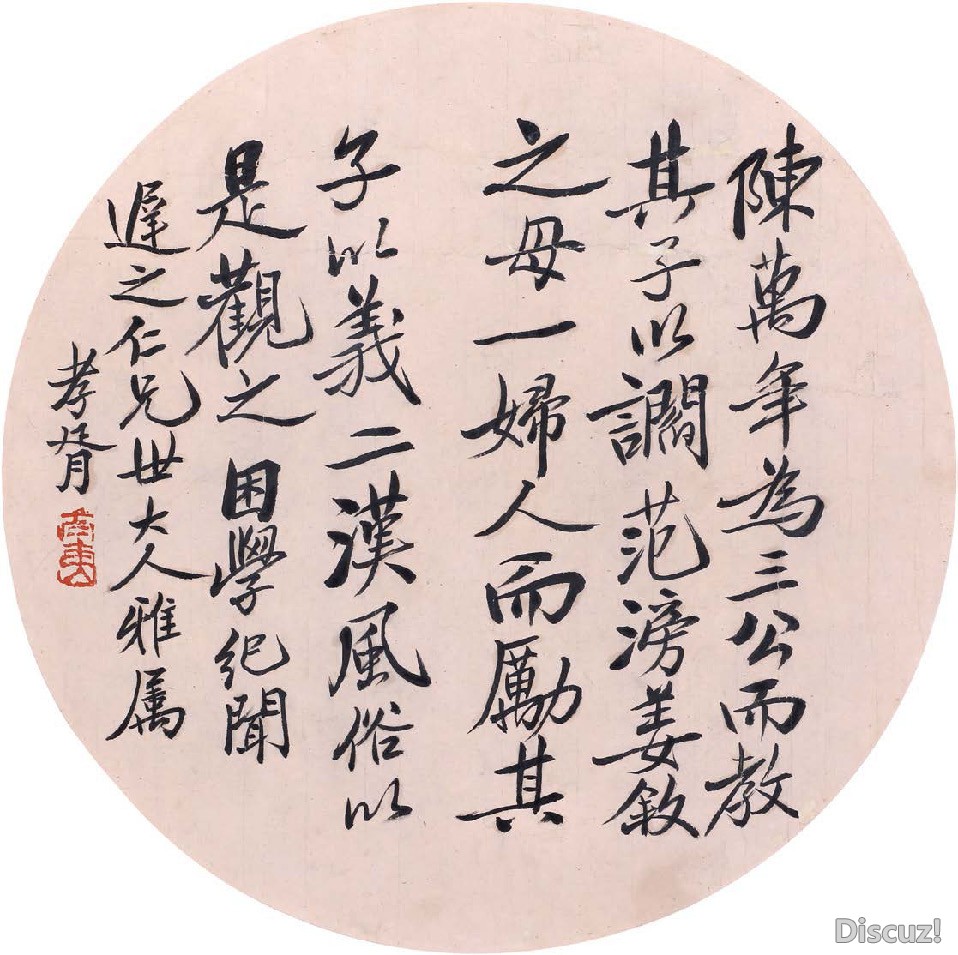 陳萬年為三公而教
其子以讇范滂姜敘
之母一婦人而勵其
子以義二漢風俗以
是觀之困學紀聞
遲之仁兄世大人雅属
孝胥
Discuz!